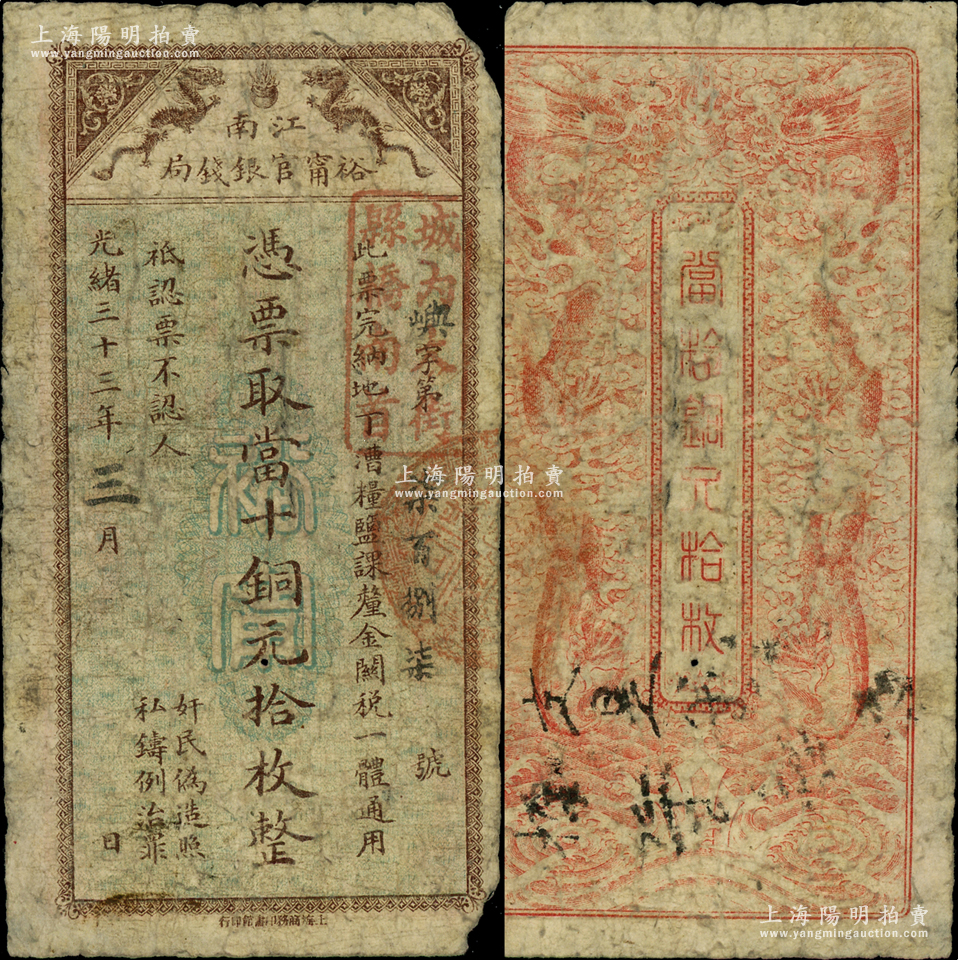 上海陽明拍賣
www.yangmingauction.com
江南
裕甯官銀錢局
嶼字第 百捌柒號
此票完納地丁漕糧鹽課釐金關稅一體通用
憑票取當十銅元拾枚整
奸民偽造照
私鑄例治罪
祗認票不認人
光緒三十三年三月 日
城 大街
縣橋 百
裕甯
上海商務印書館印行
當拾銅元拾枚
上海陽明拍賣
www.yangmingauction.com
上海陽明拍賣
www.yangmingauction.com